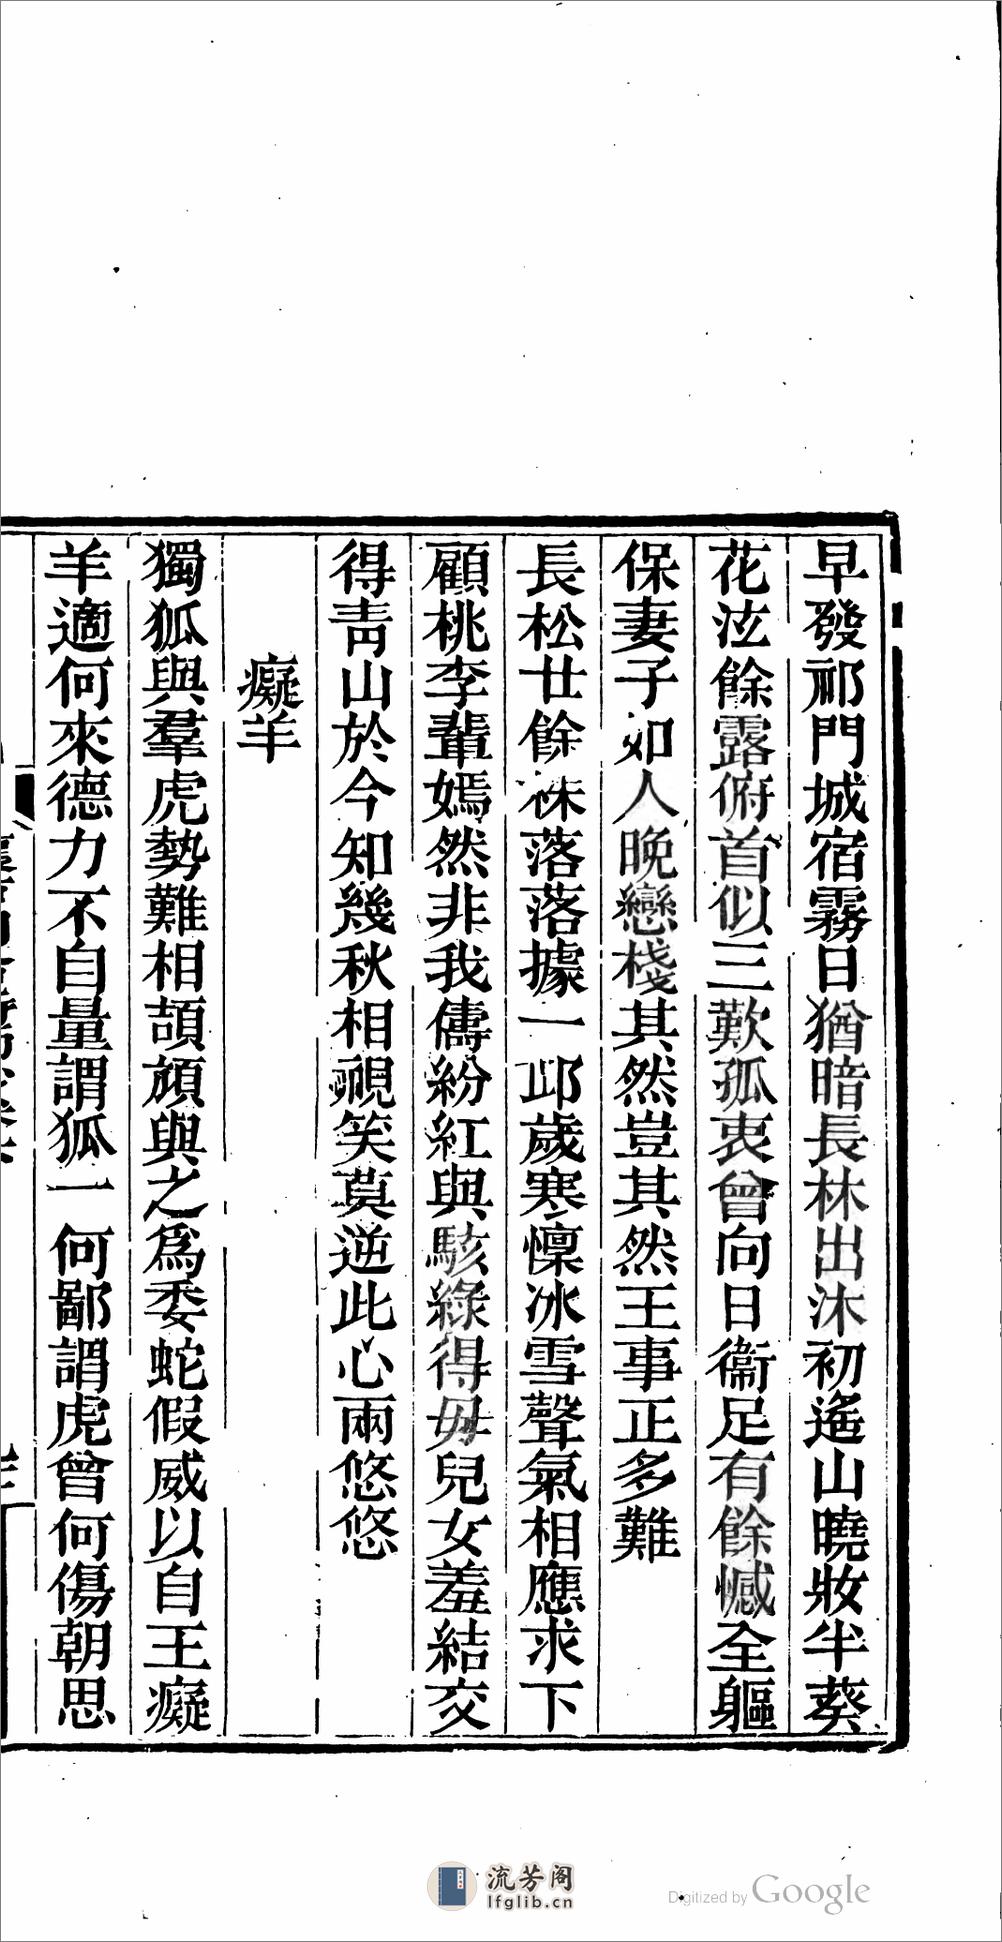 早發祁門城宿霧日猶暗長林出沐初遙山曉妝半葵
花泫餘露俯首似三歎孤衷曾向日衞足有餘憾全軀
保妻子如人晚戀棧其然豈其然王事正多難
長松廿餘株落落據一邱歲寒懍冰雪聲氣相應求下
顧桃李輩嫣然非我儔紛紅與駭綠得毋兒女羞結交
得靑山於今知幾秋相視笑莫逆此心兩悠悠
癡羊
獨狐與羣虎勢難相頡頏與之爲委蛇假威以自王癡
羊適何來德力不自量謂狐一何鄙謂虎曾何傷朝思
流芳阁
lfglib.cn
Digitized by Google